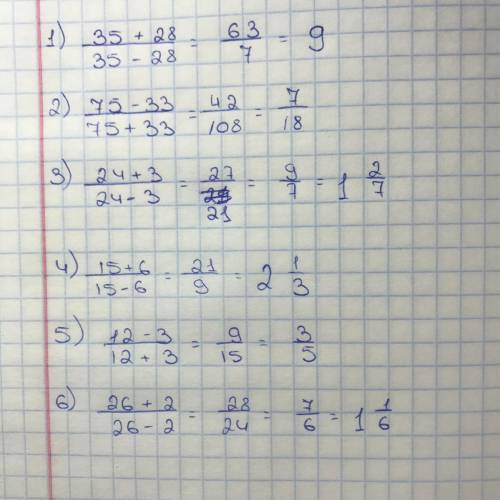 1) (35 + 28)/(35 - 28) = 63/7 = 9
2) (75 - 33)/(75 + 33) = 42/108 = 7/18
3) (24 + 3)/(24 - 3) = 27/21 = 9/7 = 1 2/7
4) (15 + 6)/(15 - 6) = 21/9 = 2 1/3
5) (12 - 3)/(12 + 3) = 9/15 = 3/5
6) (26 + 2)/(26 - 2) = 28/24 = 7/6 = 1 1/6